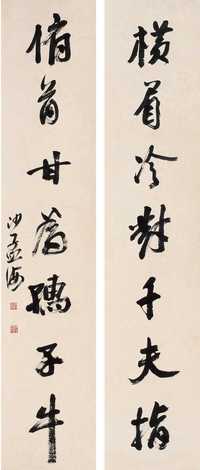 横眉冷對千夫指
俯首甘为孺子牛
沙孟海